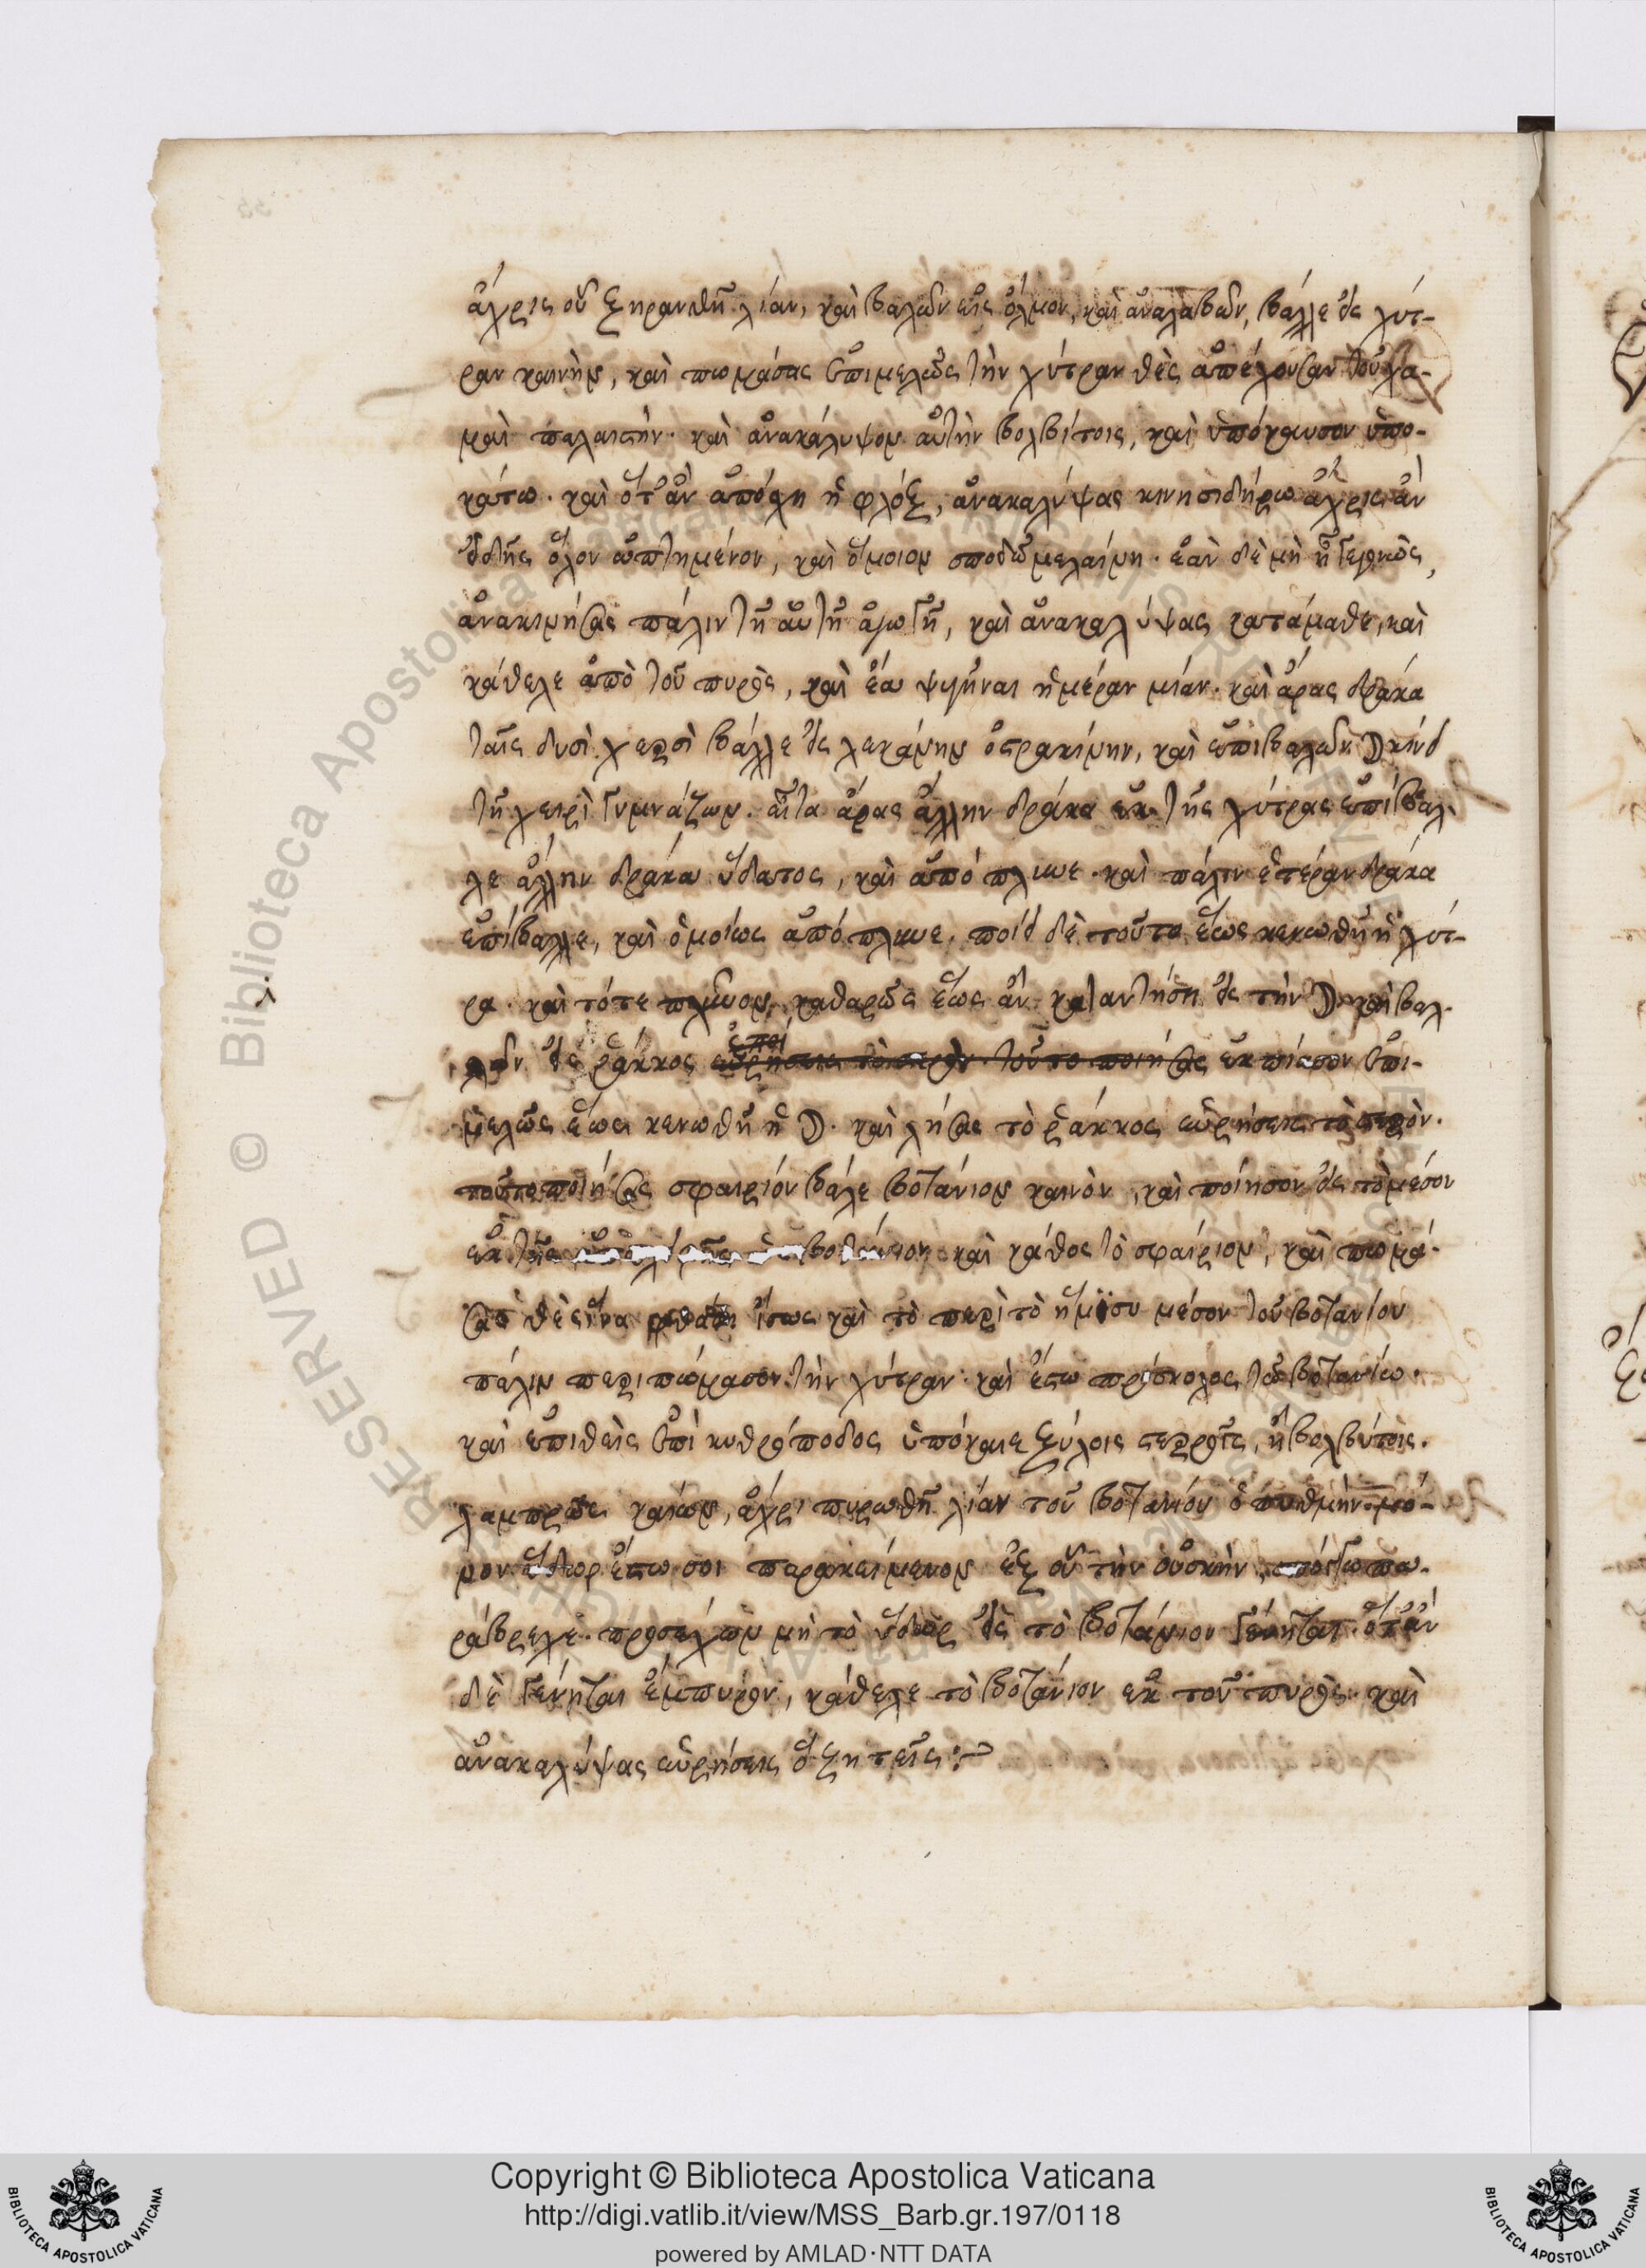 ἄχρις οὗ ξηρανθῆ λίαν, καὶ βαλὼν εἰς ὅλμον, καὶ ἀναλαβὼν, βάλλε εἰς χύτ-
ραν καινὴν, καὶ πωμάσας ἐπιμελῶς τὴν χύτραν θὲς ἀπέχουσαν τοῦ χα-
μαὶ παλαιστήν. καὶ ἀνακάλυψον αὐτὴν βολβίτοις, καὶ ὑπόκαυσον ὑπο-
κάτω. καὶ ὅτ' ἂν ἀπόσχη ἡ φλόξ, ἀνακαλύψας κίνη σιδήρω ἄχρις ἂν
ἴδης ὅλον ὠπτημένον, καὶ ὅμοιον σποδῶ μελαίνη. ἐὰν δὲ μὴ ἦ γεγονὼς,
ἀνακινήσας πάλιν τῆ αὐτῆ ἀγωγῆ, καὶ ἀνακαλύψας κατάμαθε, καὶ
κάθελε ἀπὸ τοῦ πυρὸς, καὶ ἔα ψυγῆναι ἡμέραν μίαν. καὶ ἄρας δράκα
ταῖς δυσὶ χερσὶ βάλλε εἰς λεκάνην ὀστρακίνην, καὶ ἐπιβαλὼν ☽ κίνει
τῆ χειρὶ γυμνάζων. εἶτα ἄρας ἄλλην δράκα ἐκ τῆς χύτρας ἐπίβαλ-
λε ἄλλην δράκα ὕδατος, καὶ ἀπόπλυνε. καὶ πάλιν ἑτέραν δράκα
ἐπίβαλλε, καὶ ὁμοίως ἀπόπλυνε. ποίει δὲ τοῦτο ἕως κενωθῆ ἡ χύτ-
ρα. καὶ τότε πλῦνον καθαρῶς ἕως ἂν καταντήση εἰς τὴν ☽ καὶ βαλ-
λὼν εἰς ῥάκκος εὑρήσεις τὸ στερεὸν. τοῦτο ποιήσας ἐκπίασον ἐπι-
μελῶς ἕως κενωθῆ ἡ ☽. καὶ λύσας τὸ ῥάκκος εὑρήσεις τὸ στερεὸν.
τοῦτο ποιήσας σφαιρίον βάλε βοτάνιον καινὸν, καὶ ποίησον εἰς τὸ μέσον
ἐκ τῆς βοτάνιον καὶ κάθες τὸ σφαίριον, καὶ πωμά-
σας θὲς ἵνα ἴσως καὶ τὸ περὶ τὸ ἥμισυ μέσον τοῦ βοτανίου
πάλιν περιπώμασον τὴν χύτραν καὶ ἔστω πρόσκολος τῶ βοτανίω.
καὶ ἐπιθεὶς ἐπὶ κυθρόποδος ὑπόκαιε ξύλοις στερροῖς, ἢ βολβύτοις.
λαμπρῶς καίων, ἄχρι πυρωθῆ λίαν τοῦ βοτανίου ὁ πυθμὴν μό-
νον ὕδωρ ἔστω σοι παρακείμενον ἐξ οὗ τὴν πα-
ράβρεχε. προσέχων μὴ τὸ ὕδωρ εἰς τὸ βοτάνιον γένηται. ὅτ' ἂν
δὲ γένηται ἔμπυρον, κάθελε τὸ βοτάνιον ἐκ τοῦ πυρὸς. καὶ
ἀνακαλύψας εὑρήσεις ὃ ζητεῖς :~
Copyright © Biblioteca Apostolica Vaticana
http://digi.vatlib.it/view/MSS_Barb.gr.197/0118
powered by AMLAD·NTT DATA